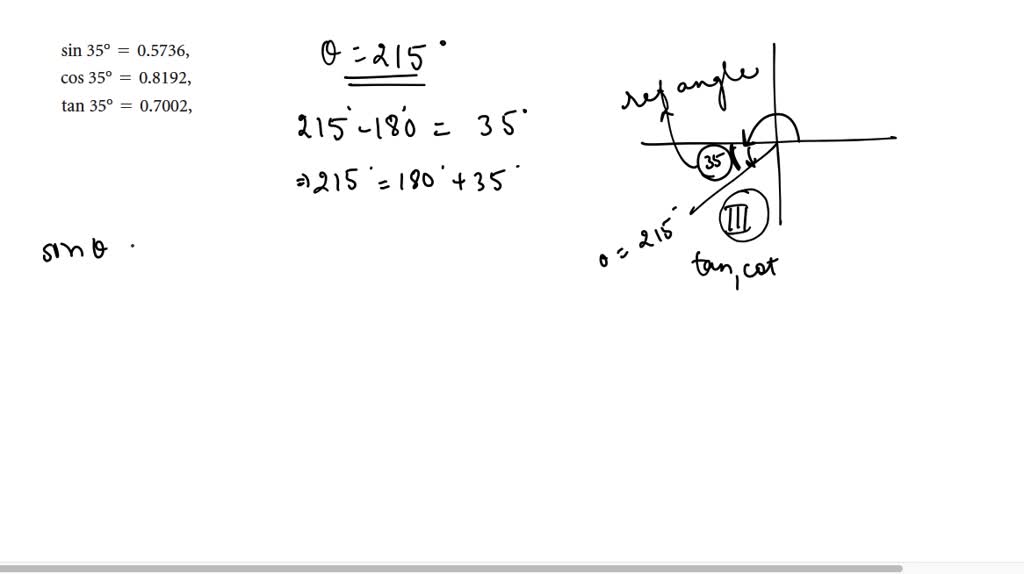 sin 35° = 0.5736,
cos 35° = 0.8192,
tan 35° = 0.7002,
θ = 215°
215° - 180° = 35°
⇒ 215° = 180° + 35°
sin θ
ref angle
35
III
θ = 215°
tan, cot